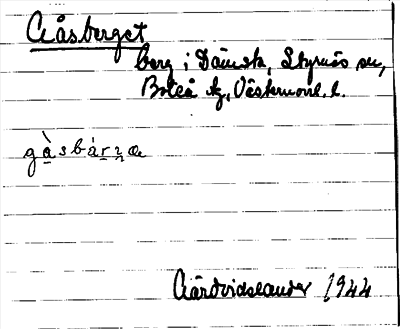 Gåsberget
berg i Dämsta, Styrnäs sn,
Boteå tg, Västernorrl. l.
gå̀sbárʒæ
Gårdvidslander 1944